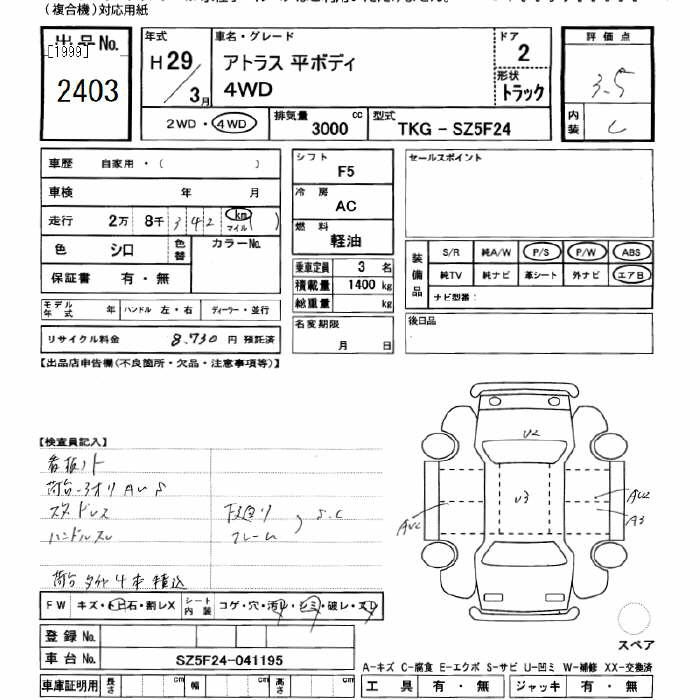 (複合機)対応用紙
出品No.
[1999]
2403
年式
H29/3月
車名・グレード
アトラス 平ボディ
4WD
ドア
2
形状
トラック
評価点
3.5
内装
C
2WD・4WD
排気量 3000 cc
型式 TKG-SZ5F24
車歴 自家用・( )
車検 年 月
走行 2万 8千 342 km マイル ( )
色 シロ
色替
カラーNo.
保証書 有・無
モデル年式 年 ハンドル 左・右 ディーラー・並行
リサイクル料金 8,730 円 預託済
シフト
F5
冷房
AC
燃料
軽油
乗車定員 3 名
積載量 1400 kg
総重量 kg
名変期限
月 日
セールスポイント
装備品
S/R 純A/W P/S P/W ABS
純TV 純ナビ 革シート 外ナビ エアB
ナビ型番:
後日品
【出品店申告欄(不良箇所・欠品・注意事項等)】
【検査員記入】
看板ノト
荷台・3オリ AU S
スタッドレス
ハンドルスレ
下廻り
フレーム
S.C
荷台 タイヤ4本 積込
U2
U3
AU2
A3
FW キズ・トビ石・割レX
シート内装 コゲ・穴・汚レ・シミ・破レ・スレ
登録No.
車台No. SZ5F24-041195
車庫証明用 長さ cm 幅 cm 高さ cm
スペア
A-キズ C-腐食 E-エクボ S-サビ U-凹ミ W-補修 XX-交換済
工具 有・無 ジャッキ 有・無